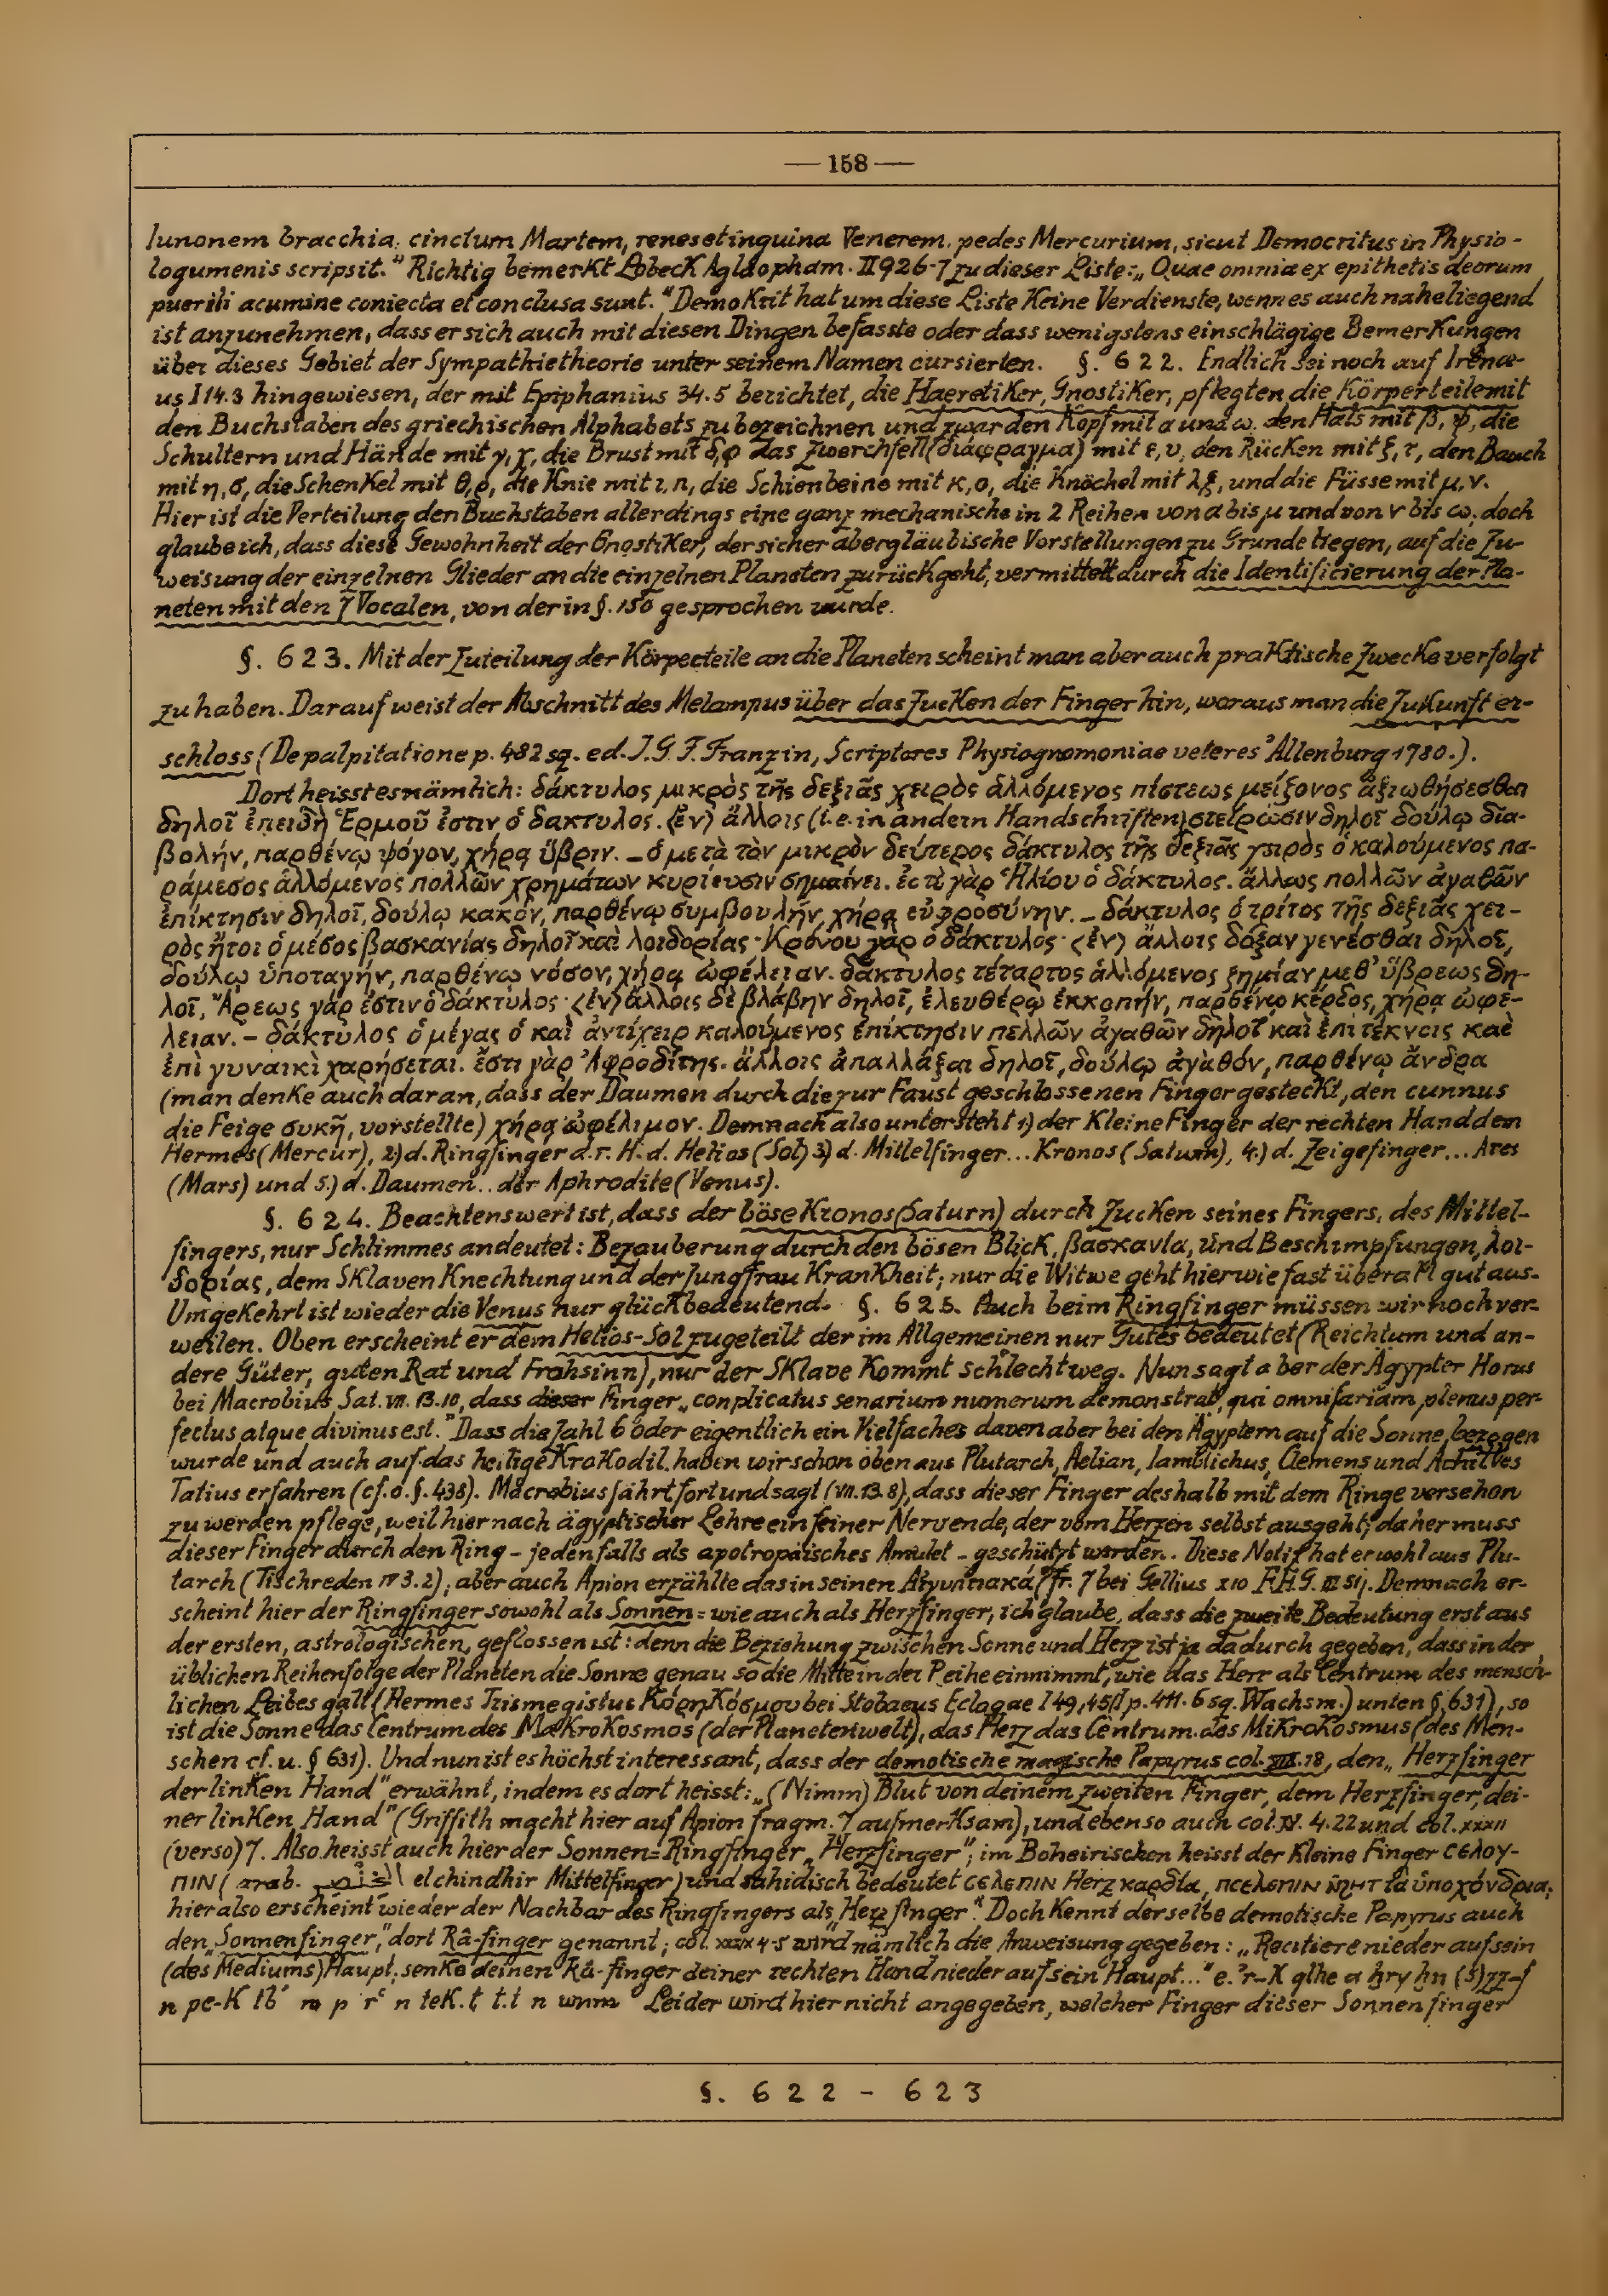 — 158 —
Iunonem bracchia, cinctum Martem, renes et inguina Venerem, pedes Mercurium, sicut Democritus in Physio-
logumenis scripsit." Richtig bemerkt Lobeck Aglaopham. II 926-7 zu dieser Liste: „Quae omnia ex epithetis deorum
puerili acumine coniecta et conclusa sunt." Demokrit hat um diese Liste keine Verdienste, wenn es auch naheliegend
ist anzunehmen, dass er sich auch mit diesen Dingen befasste oder dass wenigstens einschlägige Bemerkungen
über dieses Gebiet der Sympathietheorie unter seinem Namen cursierten. §. 622. Endlich sei noch auf Irenæ-
us I 14.3 hingewiesen, der mit Epiphanius 34.5 berichtet, die Haeretiker, Gnostiker, pflegten die Körperteile mit
den Buchstaben des griechischen Alphabets zu bezeichnen und zwar den Kopf mit α und ω, den Hals mit β, ψ, die
Schultern und Hände mit γ, χ, die Brust mit δ, φ das Zwerchfell (διάφραγμα) mit ε, υ, den Rücken mit ξ, τ, den Bauch
mit η, σ, die Schenkel mit θ, ρ, die Knie mit ι, π, die Schienbeine mit κ, ο, die Knöchel mit λ ξ, und die Füsse mit μ, ν.
Hier ist die Verteilung den Buchstaben allerdings eine ganz mechanische in 2 Reihen von α bis μ und von ν bis ω; doch
glaube ich, dass diese Gewohnheit der Gnostiker, der sicher abergläubische Vorstellungen zu Grunde liegen, auf die Zu-
weisung der einzelnen Glieder an die einzelnen Planeten zurückgeht, vermittelt durch die Identificierung der Pla-
neten mit den 7 Vocalen, von der in §. 150 gesprochen wurde.
§. 623. Mit der Zuteilung der Körperteile an die Planeten scheint man aber auch praktische Zwecke verfolgt
zu haben. Darauf weist der Abschnitt des Melampus über das Zucken der Finger hin, woraus man die Zukunft er-
schloss (De palpitatione p. 482 sq. ed. I. G. F. Franz in, Scriptores Physiognomoniae veteres' Altenburg 1780.).
Dort heisst es nämlich: δάκτυλος μικρὸς τῆς δεξιᾶς χειρὸς ἁλλόμενος πίστεως μείζονος ἀξιωθήσεσθαι
δηλοῖ ἐπειδὴ Ἑρμοῦ ἐστιν ὁ δακτυλος. ⟨ἐν⟩ ἄλλοις (i. e. in andern Handschriften) στείρωσιν δηλοῖ δούλῳ δια-
βολήν, παρθένῳ ψόγον, χήρᾳ ὕβριν. – ὁ μετὰ τὸν μικρὸν δεύτερος δάκτυλος τῆς δεξιᾶς χειρὸς ὁ καλούμενος πα-
ράμεσος ἁλλόμενος πολλῶν χρημάτων κυρίευσιν σημαίνει. ἐστὶ γὰρ Ἡλίου ὁ δάκτυλος. ἄλλως πολλῶν ἀγαθῶν
ἐπίκτησιν δηλοῖ, δούλῳ κακόν, παρθένῳ συμβουλήν, χήρᾳ εὐφροσύνην. – δάκτυλος ὁ τρίτος τῆς δεξιᾶς χει-
ρὸς ἤτοι ὁ μέσος βασκανίας δηλοῖ καὶ λοιδορίας· Κρόνου γὰρ ὁ δάκτυλος· ⟨ἐν⟩ ἄλλοις δόξαν γενέσθαι δηλοῖ,
δούλῳ ὑποταγήν, παρθένῳ νόσον, χήρᾳ ὠφέλειαν. δάκτυλος τέταρτος ἁλλόμενος ζημίαν μεθ' ὕβρεως δη-
λοῖ, Ἄρεως γάρ ἐστιν ὁ δάκτυλος· ⟨ἐν⟩ ἄλλοις δὲ βλάβην δηλοῖ, ἐλευθέρῳ ἐκκοπήν, παρθένῳ κέρδος, χήρᾳ ὠφέ-
λειαν. – δάκτυλος ὁ μέγας ὁ καὶ ἀντίχειρ καλούμενος ἐπίκτησιν πολλῶν ἀγαθῶν δηλοῖ καὶ ἐπὶ τέκνοις καὶ
ἐπὶ γυναικὶ χαρήσεται. ἔστι γὰρ Ἀφροδίτης. ἄλλοις ἀπαλλάξαι δηλοῖ, δούλῳ ἀγαθόν, παρθένῳ ἄνδρα
(man denke auch daran, dass der Daumen durch die zur Faust geschlossenen Finger gesteckt, den cunnus
die Feige συκῆ, vorstellte) χήρᾳ ὠφέλιμον. Demnach also untersteht 1) der kleine Finger der rechten Hand dem
Hermes (Mercur), 2) d. Ringfinger d. r. H. d. Helios (Sol) 3) d. Mittelfinger... Kronos (Saturn), 4.) d. Zeigefinger... Ares
(Mars) und 5.) d. Daumen.. der Aphrodite (Venus).
§. 624. Beachtenswert ist, dass der böse Kronos (Saturn) durch Zucken seines Fingers, des Mittel-
fingers, nur Schlimmes andeutet: Bezauberung durch den bösen Blick, βασκανία, und Beschimpfungen, λοι-
δορίας, dem Sklaven Knechtung und der Jungfrau Krankheit; nur die Witwe geht hier wie fast überall gut aus.
Umgekehrt ist wieder die Venus nur glückbedeutend. §. 625. Auch beim Ringfinger müssen wir noch ver-
weilen. Oben erscheint er dem Helios-Sol zugeteilt der im Allgemeinen nur Gutes bedeutet (Reichtum und an-
dere Güter, guten Rat und Frohsinn), nur der Sklave kommt schlecht weg. Nun sagt aber der Ägypter Horus
bei Macrobius Sat. VII. 13.10, dass dieser Finger „conplicatus senarium numerum demonstrat, qui omnifariam plenus per-
fectus atque divinus est." Dass die Zahl 6 oder eigentlich ein Vielfaches davon aber bei den Ägyptern auf die Sonne bezogen
wurde und auch auf das heilige Krokodil, haben wir schon oben aus Plutarch, Aelian, Iamblichus, Clemens und Achilles
Tatius erfahren (cf. o. §. 438). Macrobius fährt fort und sagt (VII. 13. 8), dass dieser Finger deshalb mit dem Ringe versehen
zu werden pflege, weil hier nach ägyptischer Lehre ein feiner Nerv ende, der vom Herzen selbst ausgeht; daher muss
dieser Finger durch den Ring – jedenfalls als apotropäisches Amulet – geschützt werden. Diese Notiz hat er wohl aus Plu-
tarch (Tischreden IV 3.2); aber auch Apion erzählte das in seinen Αἰγυπτιακά (fr. 7 bei Gellius X 10 F.H.G. III. Demnach er-
scheint hier der Ringfinger sowohl als Sonnen= wie auch als Herzfinger, ich glaube, dass die zweite Bedeutung erst aus
der ersten, astrologischen, geflossen ist: denn die Beziehung zwischen Sonne und Herz ist ja dadurch gegeben, dass in der
üblichen Reihenfolge der Planeten die Sonne genau so die Mitte in der Reihe einnimmt, wie das Herz als Centrum des mensch-
lichen Leibes galt (Hermes Trismegistus Κόρη Κόσμου bei Stobaeus Eclogae I 49, 45 p. 411. 6 sq. Wachsm.) unten § 631), so
ist die Sonne das Centrum des Makrokosmos (der Planetenwelt), das Herz das Centrum des Mikrokosmus (des Men-
schen cf. u. § 631). Und nun ist es höchst interessant, dass der demotische magische Papyrus col. 18, den „Herzfinger
der linken Hand" erwähnt, indem es dort heisst: „(Nimm) Blut von deinem zweiten Finger, dem Herzfinger, dei-
ner linken Hand" (Griffith macht hier auf Apion fragm. 7 aufmerksam), und ebenso auch col. IV. 4. 22 und col. XXXII
(verso) 7. Also heisst auch hier der Sonnen=Ringfinger „Herzfinger"; im Boheirischen heisst der kleine Finger ⲥⲉⲗⲟⲩ-
ⲡⲓⲛ (arab. el chindhir Mittelfinger) und sahidisch bedeutet ⲥⲉⲗⲉⲡⲓⲛ Herz καρδία, ⲡⲥⲉⲗⲉⲡⲓⲛ ⲛ̄ϩⲏⲧ τὰ ὑποχόνδρια;
hier also erscheint wieder der Nachbar des Ringfingers als „Herzfinger". Doch kennt derselbe demotische Papyrus auch
den „Sonnenfinger", dort Râ-finger genannt; col. XXIX 4-5 wird nämlich die Anweisung gegeben: „Recitiere nieder auf sein
(des Mediums) Haupt, senke deinen Râ-finger deiner rechten Hand nieder auf sein Haupt..." e.'r-K qlhe a ẖry ẖn (s)zz-f
n pe-K tb' m p r' n teK.t t.t n wnm Leider wird hier nicht angegeben, welcher Finger dieser Sonnenfinger
§. 622 - 623